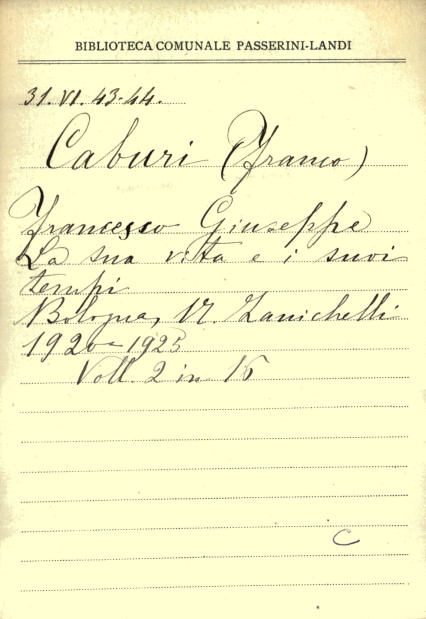 BIBLIOTECA COMUNALE PASSERINI-LANDI
31. VI. 43-44.
Caburi (Franco)
Francesco Giuseppe
La sua vita e i suoi
tempi
Bologna, N. Zanichelli
1920-1925
Voll. 2 in 16
C